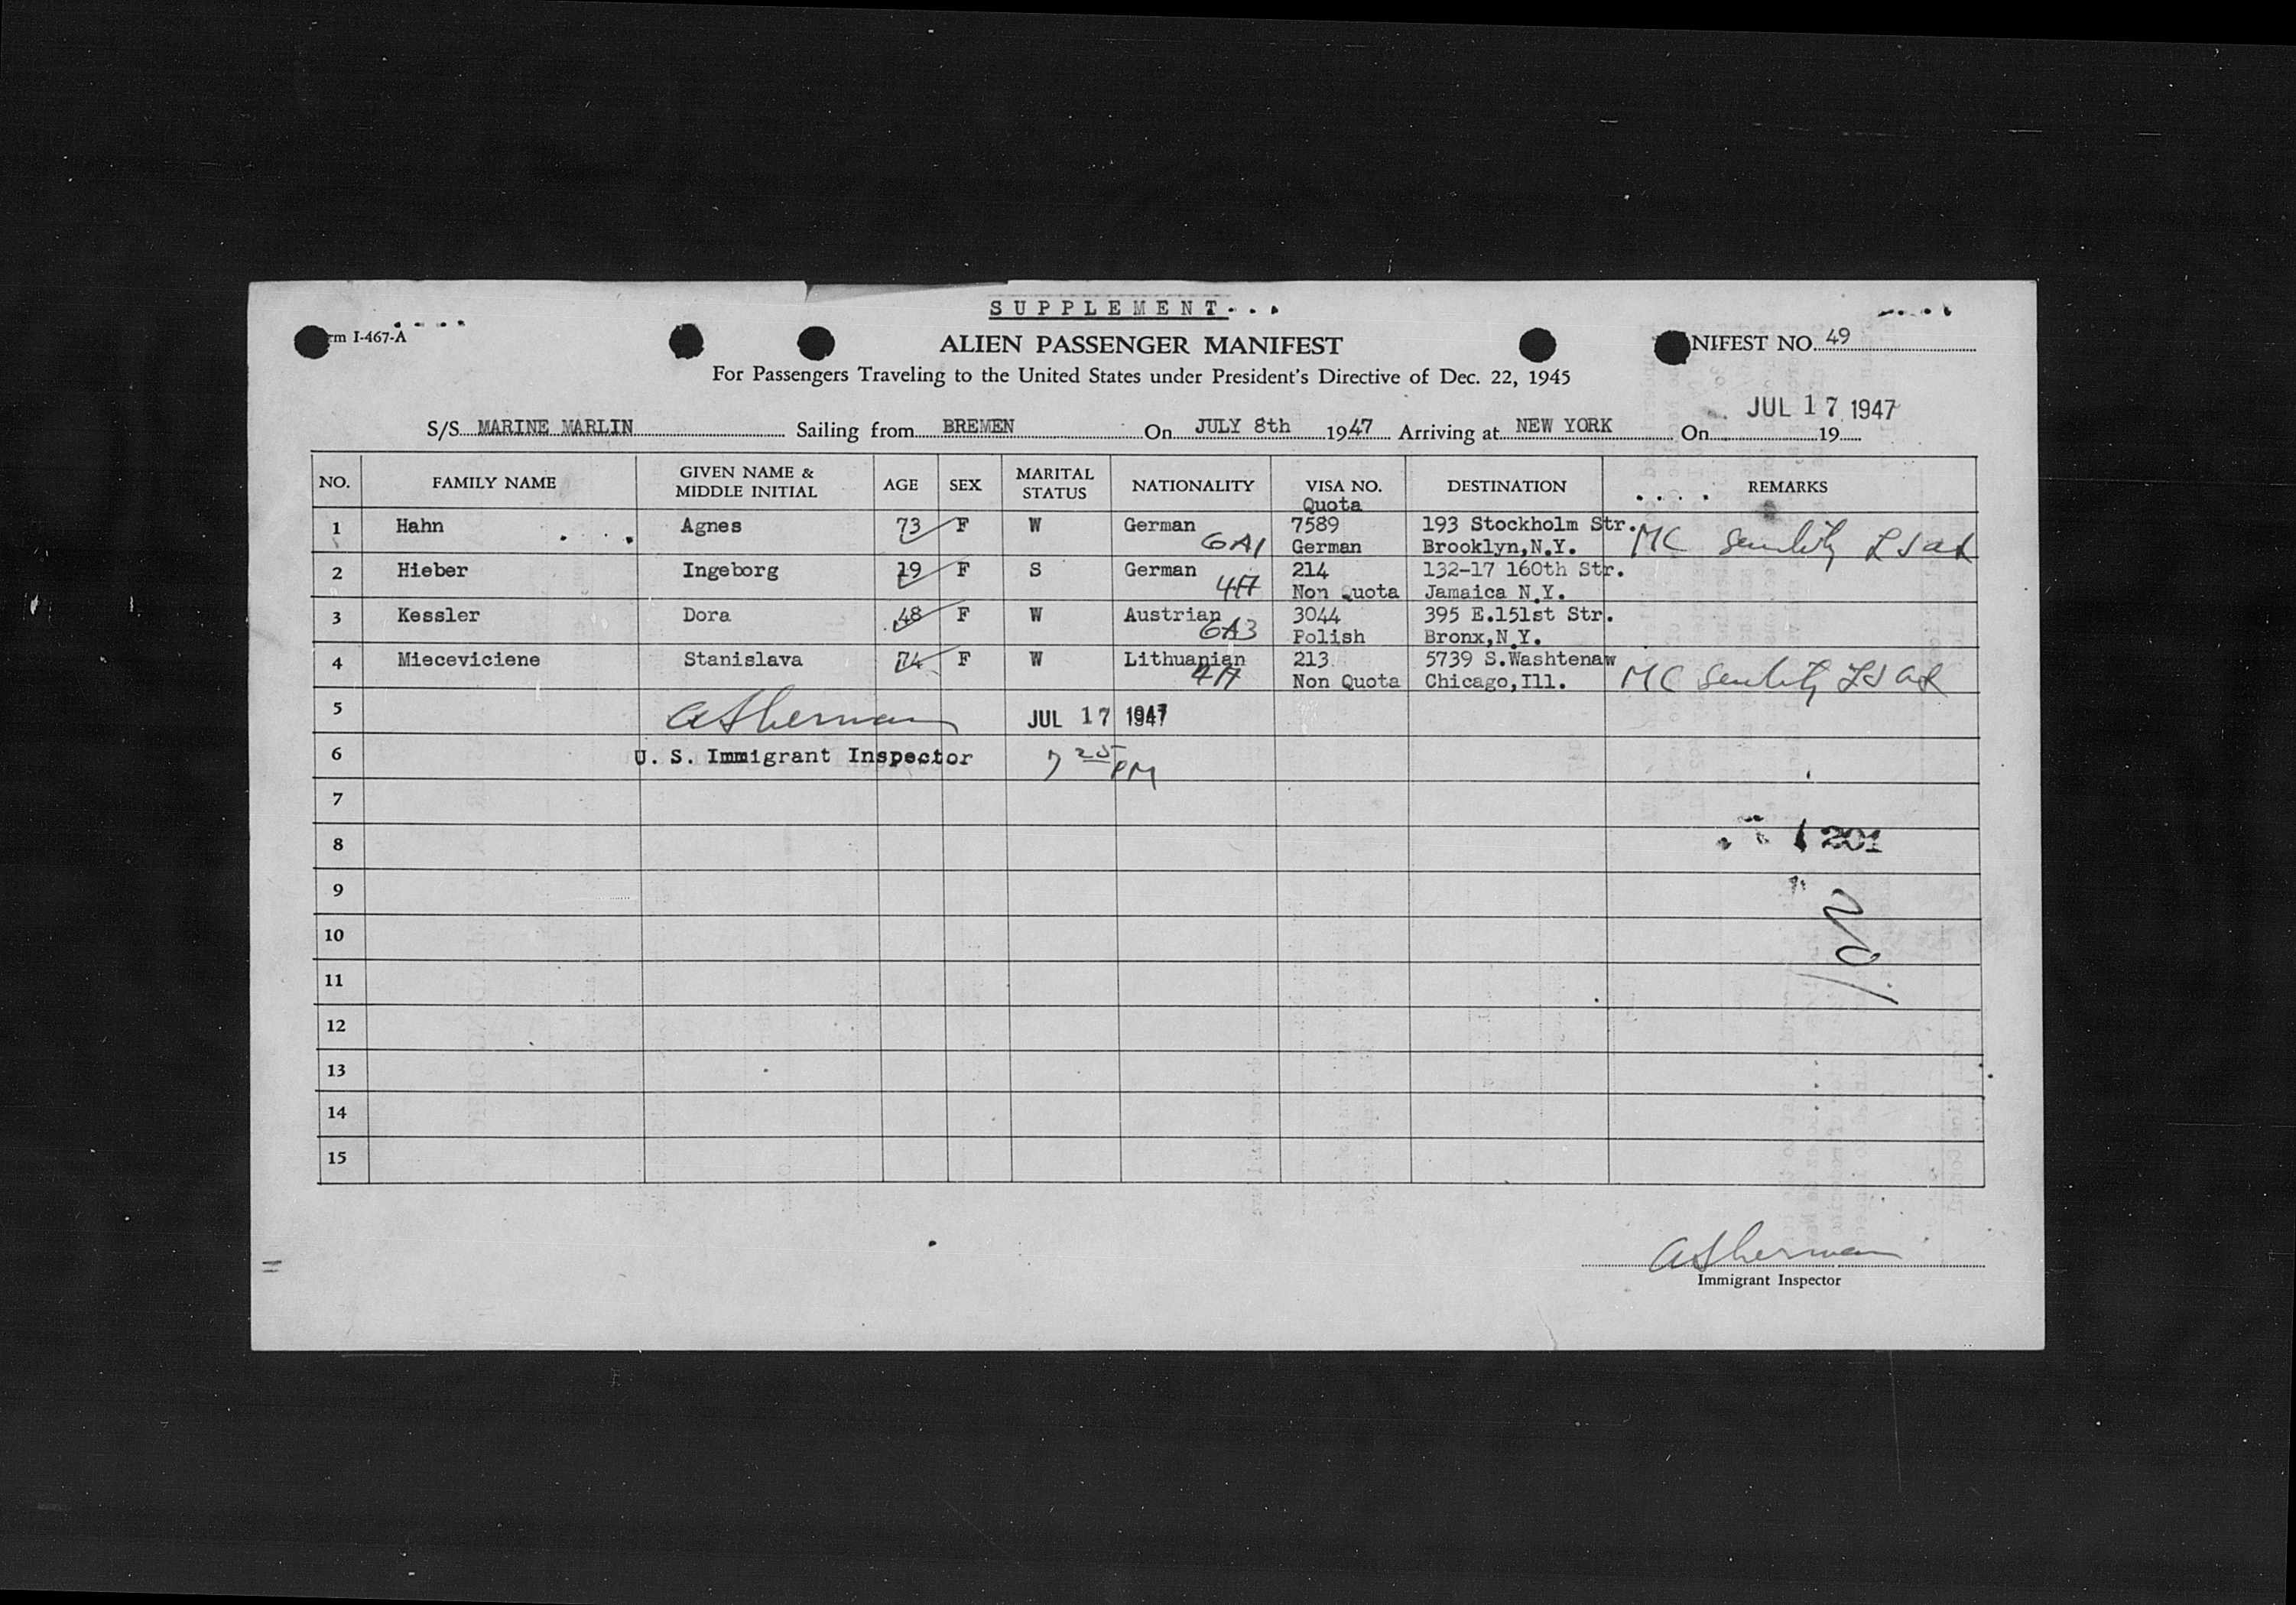 SUPPLEMENT...
rm I-467-A
ALIEN PASSENGER MANIFEST
NIFEST NO. 49
For Passengers Traveling to the United States under President's Directive of Dec. 22, 1945
JUL 17 1947
S/S MARINE MARLIN Sailing from BREMEN On JULY 8th 1947 Arriving at NEW YORK On 19
NO. FAMILY NAME GIVEN NAME & MIDDLE INITIAL AGE SEX MARITAL STATUS NATIONALITY VISA NO. DESTINATION REMARKS
Quota
1 Hahn Agnes 73 F W German 7589 193 Stockholm Str.
6A1 German Brooklyn,N.Y. MC Senility
2 Hieber Ingeborg 19 F S German 214 132-17 160th Str.
4A Non Quota Jamaica N.Y.
3 Kessler Dora 48 F W Austrian 3044 395 E.151st Str.
6A3 Polish Bronx,N.Y.
4 Mieceviciene Stanislava 74 F W Lithuanian 213 5739 S.Washtenaw
4A Non Quota Chicago,Ill. MC Senility
5 ASherman JUL 17 1947
6 U. S. Immigrant Inspector 7 25 PM
7
8 201
9
10
11
12
13
14
15
ASherman
Immigrant Inspector